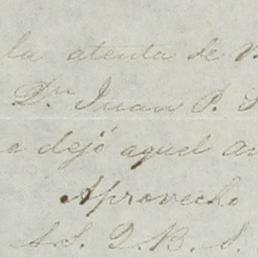 la atenta de V
Dn Juan P. S
a dejó aquel as
Aprovecho
A.S. Q.B. S.